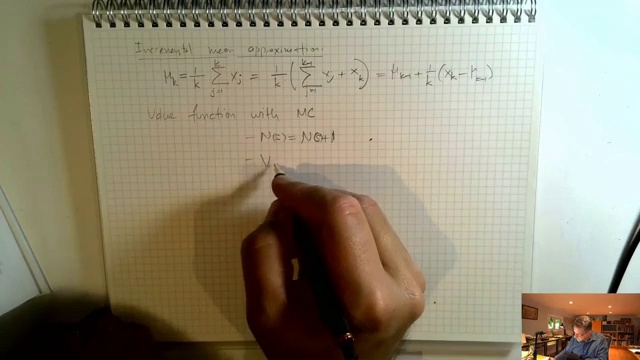 Incremental mean approximation:
μ_k = 1/k ∑_{j=1}^{k} x_j = 1/k ( ∑_{j=1}^{k-1} x_j + x_k ) = μ_{k-1} + 1/k (x_k - μ_{k-1})
Value function with MC
- N(s) = N(s)+1
- V